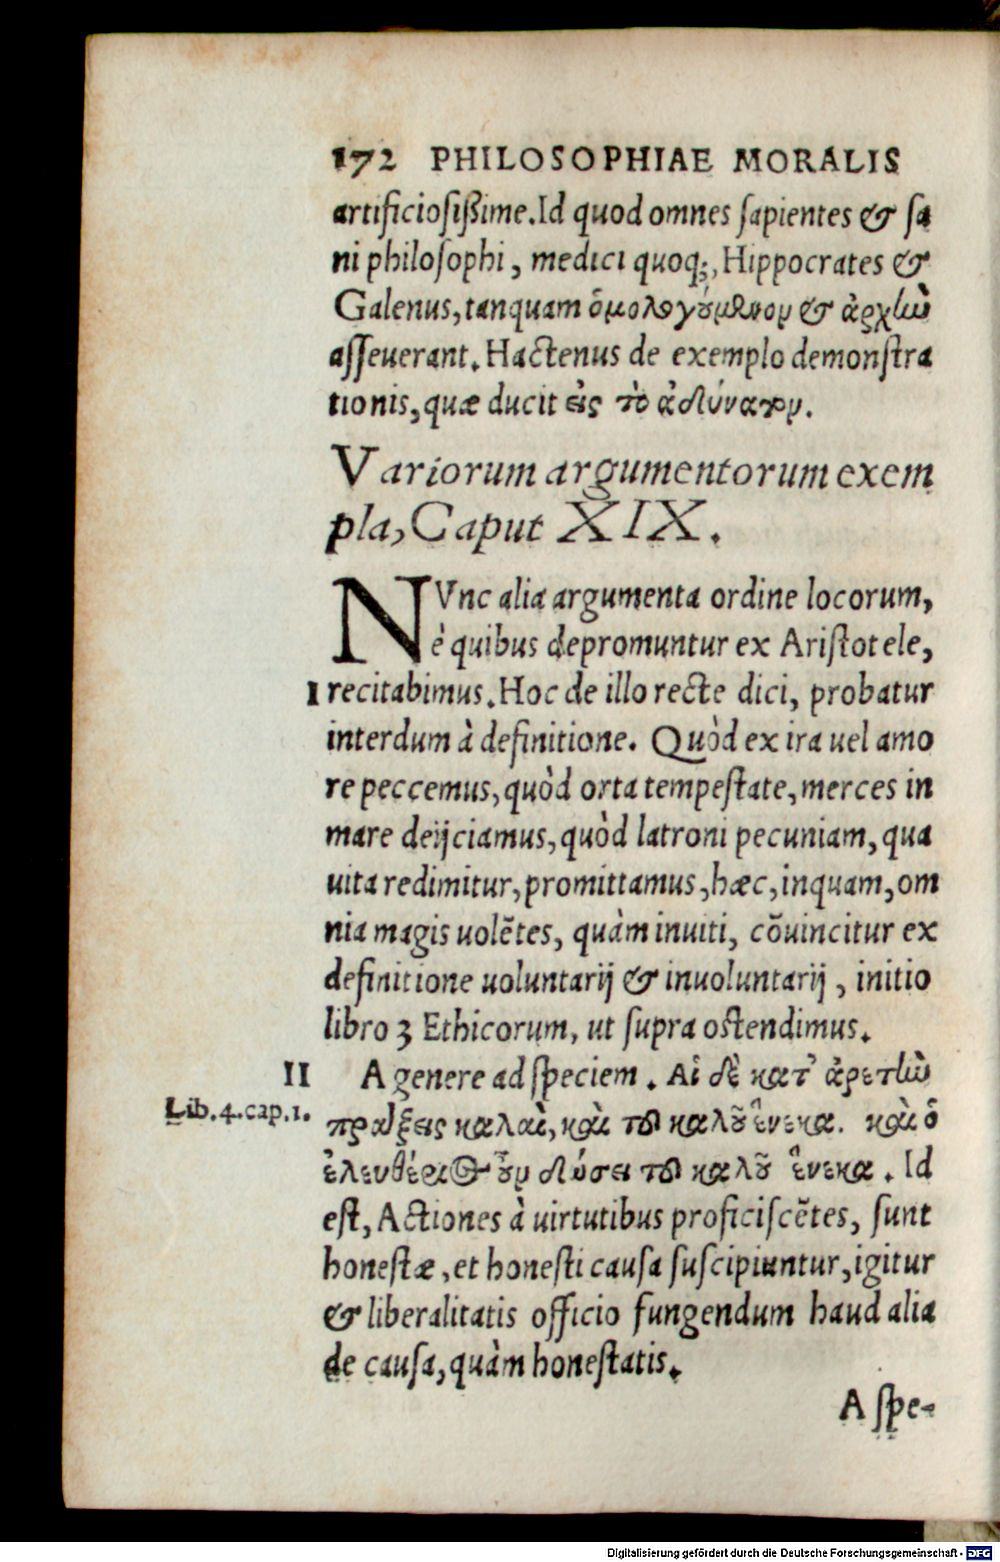 172 PHILOSOPHIAE MORALIS
artificiosißime. Id quod omnes ſapientes & ſa
ni philoſophi, medici quoq;, Hippocrates &
Galenus, tanquam ὁμολογούμενον & ἀρχὴν
aſſeuerant. Hactenus de exemplo demonſtra
tionis, quæ ducit εἰς τὸ ἀδύνατον.
Variorum argumentorum exem
pla, Caput XIX.
NVnc alia argumenta ordine locorum,
è quibus depromuntur ex Ariſtotele,
I recitabimus. Hoc de illo recte dici, probatur
interdum à definitione. Quòd ex ira uel amo
re peccemus, quòd orta tempeſtate, merces in
mare deijciamus, quòd latroni pecuniam, qua
uita redimitur, promittamus, hæc, inquam, om
nia magis uolẽtes, quàm inuiti, cõuincitur ex
definitione uoluntarij & inuoluntarij, initio
libro 3 Ethicorum, ut ſupra oſtendimus.
II A genere ad ſpeciem. Αἱ δὲ κατ' ἀρετὴν
Lib. 4. cap. 1. πράξεις καλαὶ, καὶ τοῦ καλοῦ ἕνεκα. καὶ ὁ
ἐλευθέριος οὖν δώσει τοῦ καλοῦ ἕνεκα. Id
eſt, Actiones à uirtutibus proficiſcẽtes, ſunt
honeſtæ, et honeſti cauſa ſuſcipiuntur, igitur
& liberalitatis officio fungendum haud alia
de cauſa, quàm honeſtatis.
A ſpe-
Digitalisierung gefördert durch die Deutsche Forschungsgemeinschaft - DFG